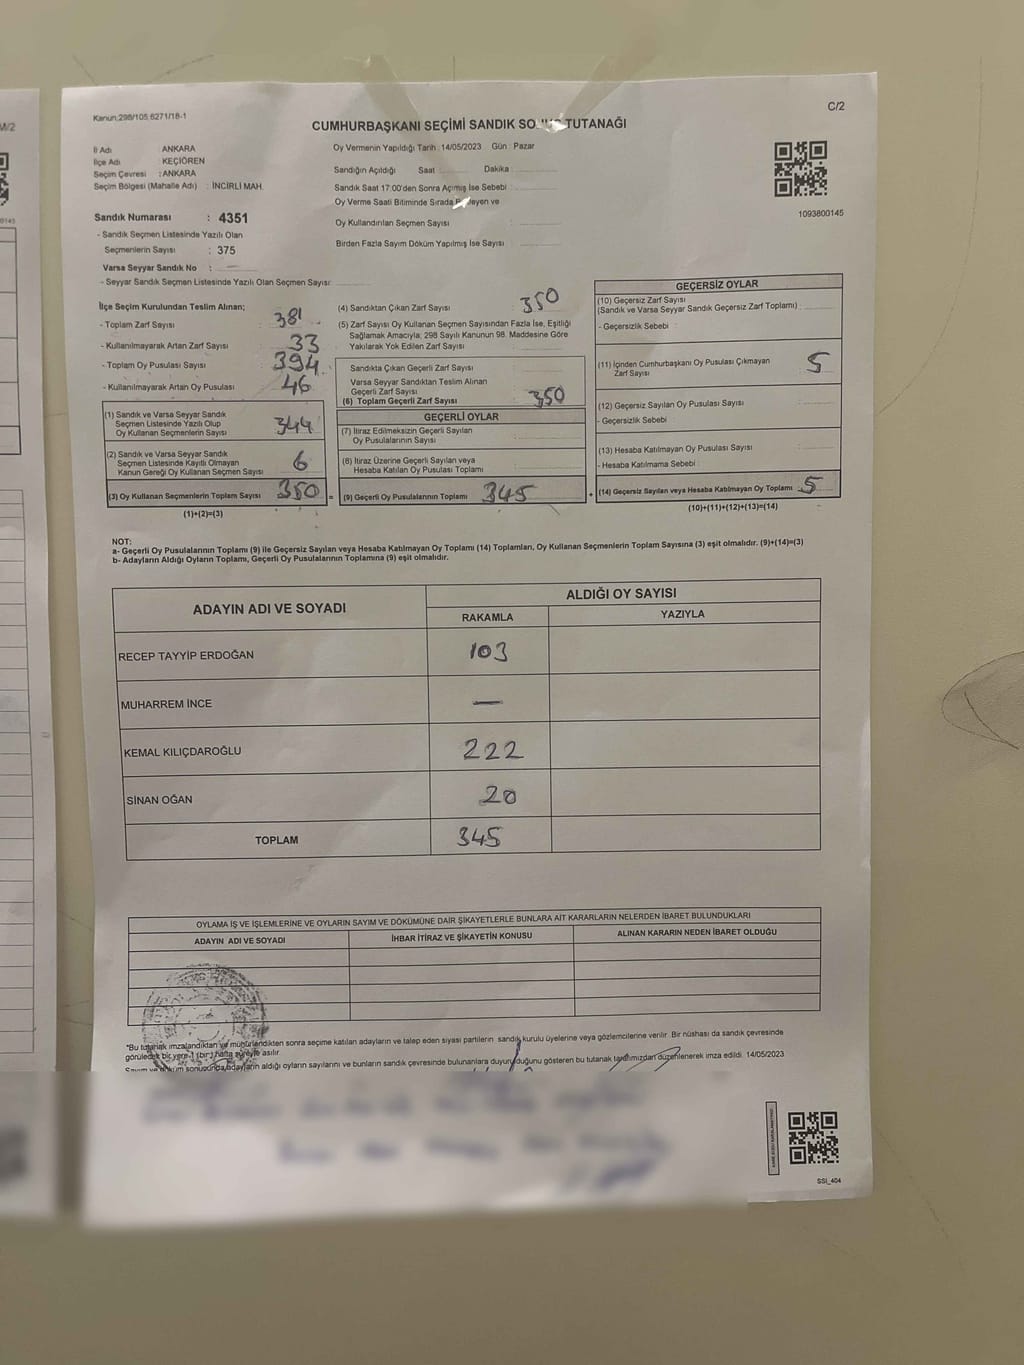 M/2
0145
Kanun:298/105 6271/18-1
C/2
CUMHURBAŞKANI SEÇİMİ SANDIK TUTANAĞI
İl Adı : ANKARA
İlçe Adı : KEÇİÖREN
Seçim Çevresi : ANKARA
Seçim Bölgesi (Mahalle Adı) : İNCİRLİ MAH.
Sandık Numarası : 4351
- Sandık Seçmen Listesinde Yazılı Olan
Seçmenlerin Sayısı : 375
Varsa Seyyar Sandık No :
- Seyyar Sandık Seçmen Listesinde Yazılı Olan Seçmen Sayısı
Oy Vermenin Yapıldığı Tarih :14/05/2023 Gün : Pazar
Sandığın Açıldığı Saat Dakika
Sandık Saat 17:00'den Sonra Açımış İse Sebebi
Oy Verme Saati Bitiminde Sırada ve
Oy Kullandırılan Seçmen Sayısı
Birden Fazla Sayım Döküm Yapılmış İse Sayısı
1093800145
İlçe Seçim Kurulundan Teslim Alınan;
- Toplam Zarf Sayısı 381
- Kullanılmayarak Artan Zarf Sayısı 33
- Toplam Oy Pusulası Sayısı 394
- Kullanılmayarak Artan Oy Pusulası 46
(1) Sandık ve Varsa Seyyar Sandık
Seçmen Listesinde Yazılı Olup
Oy Kullanan Seçmenlerin Sayısı 344
(2) Sandık ve Varsa Seyyar Sandık
Seçmen Listesinde Kayıtlı Olmayan
Kanun Gereği Oy Kullanan Seçmen Sayısı 6
(3) Oy Kullanan Seçmenlerin Toplam Sayısı 350 =
(1)+(2)=(3)
(4) Sandıktan Çıkan Zarf Sayısı 350
(5) Zarf Sayısı Oy Kullanan Seçmen Sayısından Fazla İse, Eşitliği
Sağlamak Amacıyla; 298 Sayılı Kanunun 98. Maddesine Göre
Yakılarak Yok Edilen Zarf Sayısı
Sandıkta Çıkan Geçerli Zarf Sayısı
Varsa Seyyar Sandıktan Teslim Alınan
Geçerli Zarf Sayısı
(6) Toplam Geçerli Zarf Sayısı 350
GEÇERLİ OYLAR
(7) İtiraz Edilmeksizin Geçerli Sayılan
Oy Pusulalarının Sayısı
(8) İtiraz Üzerine Geçerli Sayılan veya
Hesaba Katılan Oy Pusulası Toplamı
(9) Geçerli Oy Pusulalarının Toplamı 345 +
GEÇERSİZ OYLAR
(10) Geçersiz Zarf Sayısı
(Sandık ve Varsa Seyyar Sandık Geçersiz Zarf Toplamı)
- Geçersizlik Sebebi
(11) İçinden Cumhurbaşkanı Oy Pusulası Çıkmayan
Zarf Sayısı 5
(12) Geçersiz Sayılan Oy Pusulası Sayısı
- Geçersizlik Sebebi
(13) Hesaba Katılmayan Oy Pusulası Sayısı
- Hesaba Katılmama Sebebi
(14) Geçersiz Sayılan veya Hesaba Katılmayan Oy Toplamı 5
(10)+(11)+(12)+(13)=(14)
NOT:
a- Geçerli Oy Pusulalarının Toplamı (9) ile Geçersiz Sayılan veya Hesaba Katılmayan Oy Toplamı (14) Toplamları, Oy Kullanan Seçmenlerin Toplam Sayısına (3) eşit olmalıdır. (9)+(14)=(3)
b- Adayların Aldığı Oyların Toplamı, Geçerli Oy Pusulalarının Toplamına (9) eşit olmalıdır.
ADAYIN ADI VE SOYADI
ALDIĞI OY SAYISI
RAKAMLA YAZIYLA
RECEP TAYYİP ERDOĞAN 103
MUHARREM İNCE —
KEMAL KILIÇDAROĞLU 222
SİNAN OĞAN 20
TOPLAM 345
OYLAMA İŞ VE İŞLEMLERİNE VE OYLARIN SAYIM VE DÖKÜMÜNE DAİR ŞİKAYETLERLE BUNLARA AİT KARARLARIN NELERDEN İBARET BULUNDUKLARI
ADAYIN ADI VE SOYADI İHBAR İTİRAZ VE ŞİKAYETİN KONUSU ALINAN KARARIN NEDEN İBARET OLDUĞU
*Bu tutanak imzalandıktan ve mühürlendikten sonra seçime katılan adayların ve talep eden siyasi partilerin sandık kurulu üyelerine veya gözlemcilerine verilir. Bir nüshası da sandık çevresinde
görülecek bir yere 1 (bir) hafta süreyle asılır.
Sayım ve döküm sonucunda adayların aldığı oyların sayılarını ve bunların sandık çevresinde bulunanlara duyurulduğunu gösteren bu tutanak tarafımızdan düzenlenerek imza edildi. 14/05/2023
SSI_404